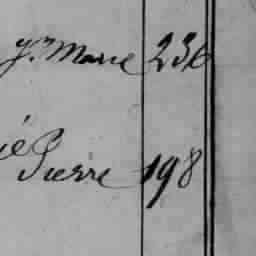 Jn Marie 236
ie Pierre 198